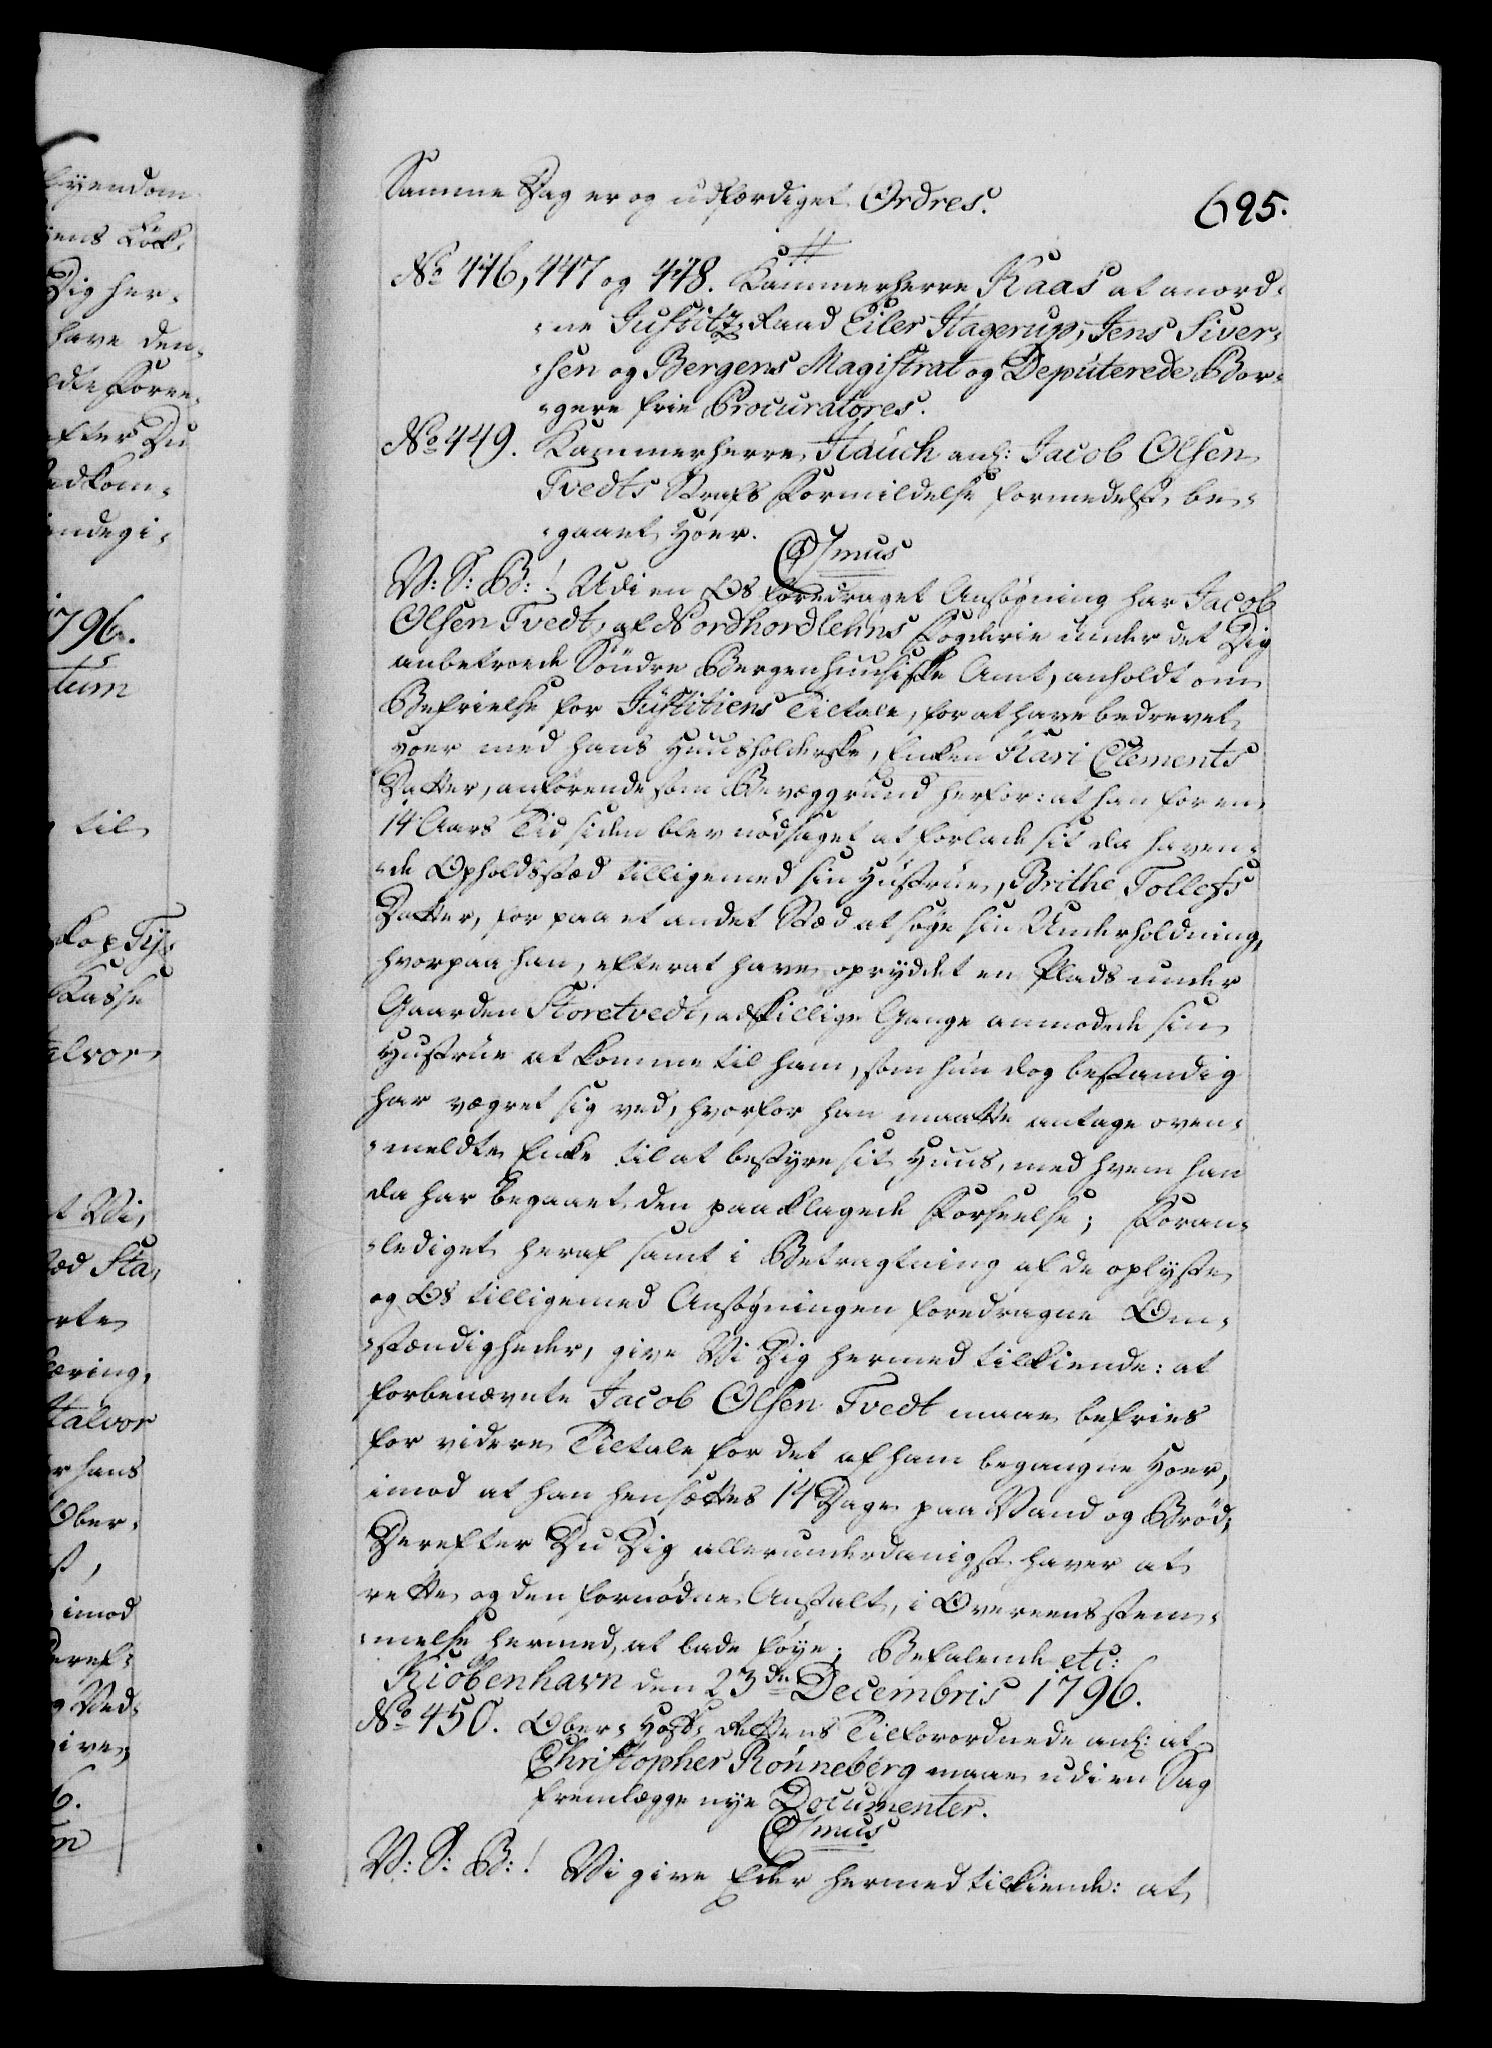 Samme Dag er og udfærdiget Ordres.
695.
No 446, 447 og 448. Kammerherre Kaas at anord-
-ne Justitz-Raad Eiler Hagerup, Jens Siver-
-sen og Bergens Magistrat og Deputerede Bor-
-gere frie Procuratores.
No 449. Kammerherre Hauch anl: Jacob Olsen
Tvedts Strafs Formildelse formedelst be-
-gaaet Hoer.
CSmus
V: S: B:! Udi en Os foredraget Ansøgning har Jacob
Olsen Tvedt, af Nordhordlehns Fogderie under det Dig
anbetroede Søndre Bergenhuusiske Amt, anholdt om
Befrielse for Justitiens Tiltale, for at have bedrevet
Hoer med hans Huusholderske, Enken Kari Clements
Datter, anførende som Bevæggrund herfor: at han for en
14 Aars Tid siden blev nødsaget at forlade sit da haven-
-de Opholdsstæd tilligemed sin Hustrue, Brithe Tollefs
Datter, for paa et andet Stæd at søge sin Underholdning,
hvorpaa han, efterat have opryddet en Plads under
Gaarden Storetvedt, adskillige Gange anmodede sin
Hustrue at komme til ham, som hun dog bestandig
har vægret sig ved, hvorfor han maatte antage oven-
-meldte Enke til at bestyre sit Huus, med hvem han
da har begaaet den paaklagede Forseelse; Foran-
-lediget heraf samt i Betragtning af de oplyste
og Os tilligemed Ansøgningen foredragne Om-
-stændigheder, give Vi Dig hermed tilkiende: at
forbenævnte Jacob Olsen Tvedt maae befries
for videre Tiltale for det af ham begangne Hoer,
imod at han hensættes 14 Dage paa Vand og Brød;
Derefter Du Dig allerunderdanigst haver at
rette og den fornødne Anstalt, i Overeensstem-
-melse hermed, at lade føye; Befalende etc:
Kiøbenhavn den 23de Decembris 1796.
No 450. Ober-Hof-Rettens Tilforordnede anl: at
Christopher Rønneberg maae udi en Sag
fremlægge nye Documenter.
CSmus
V: S: B:! Vi give Eder hermed tilkiende: at